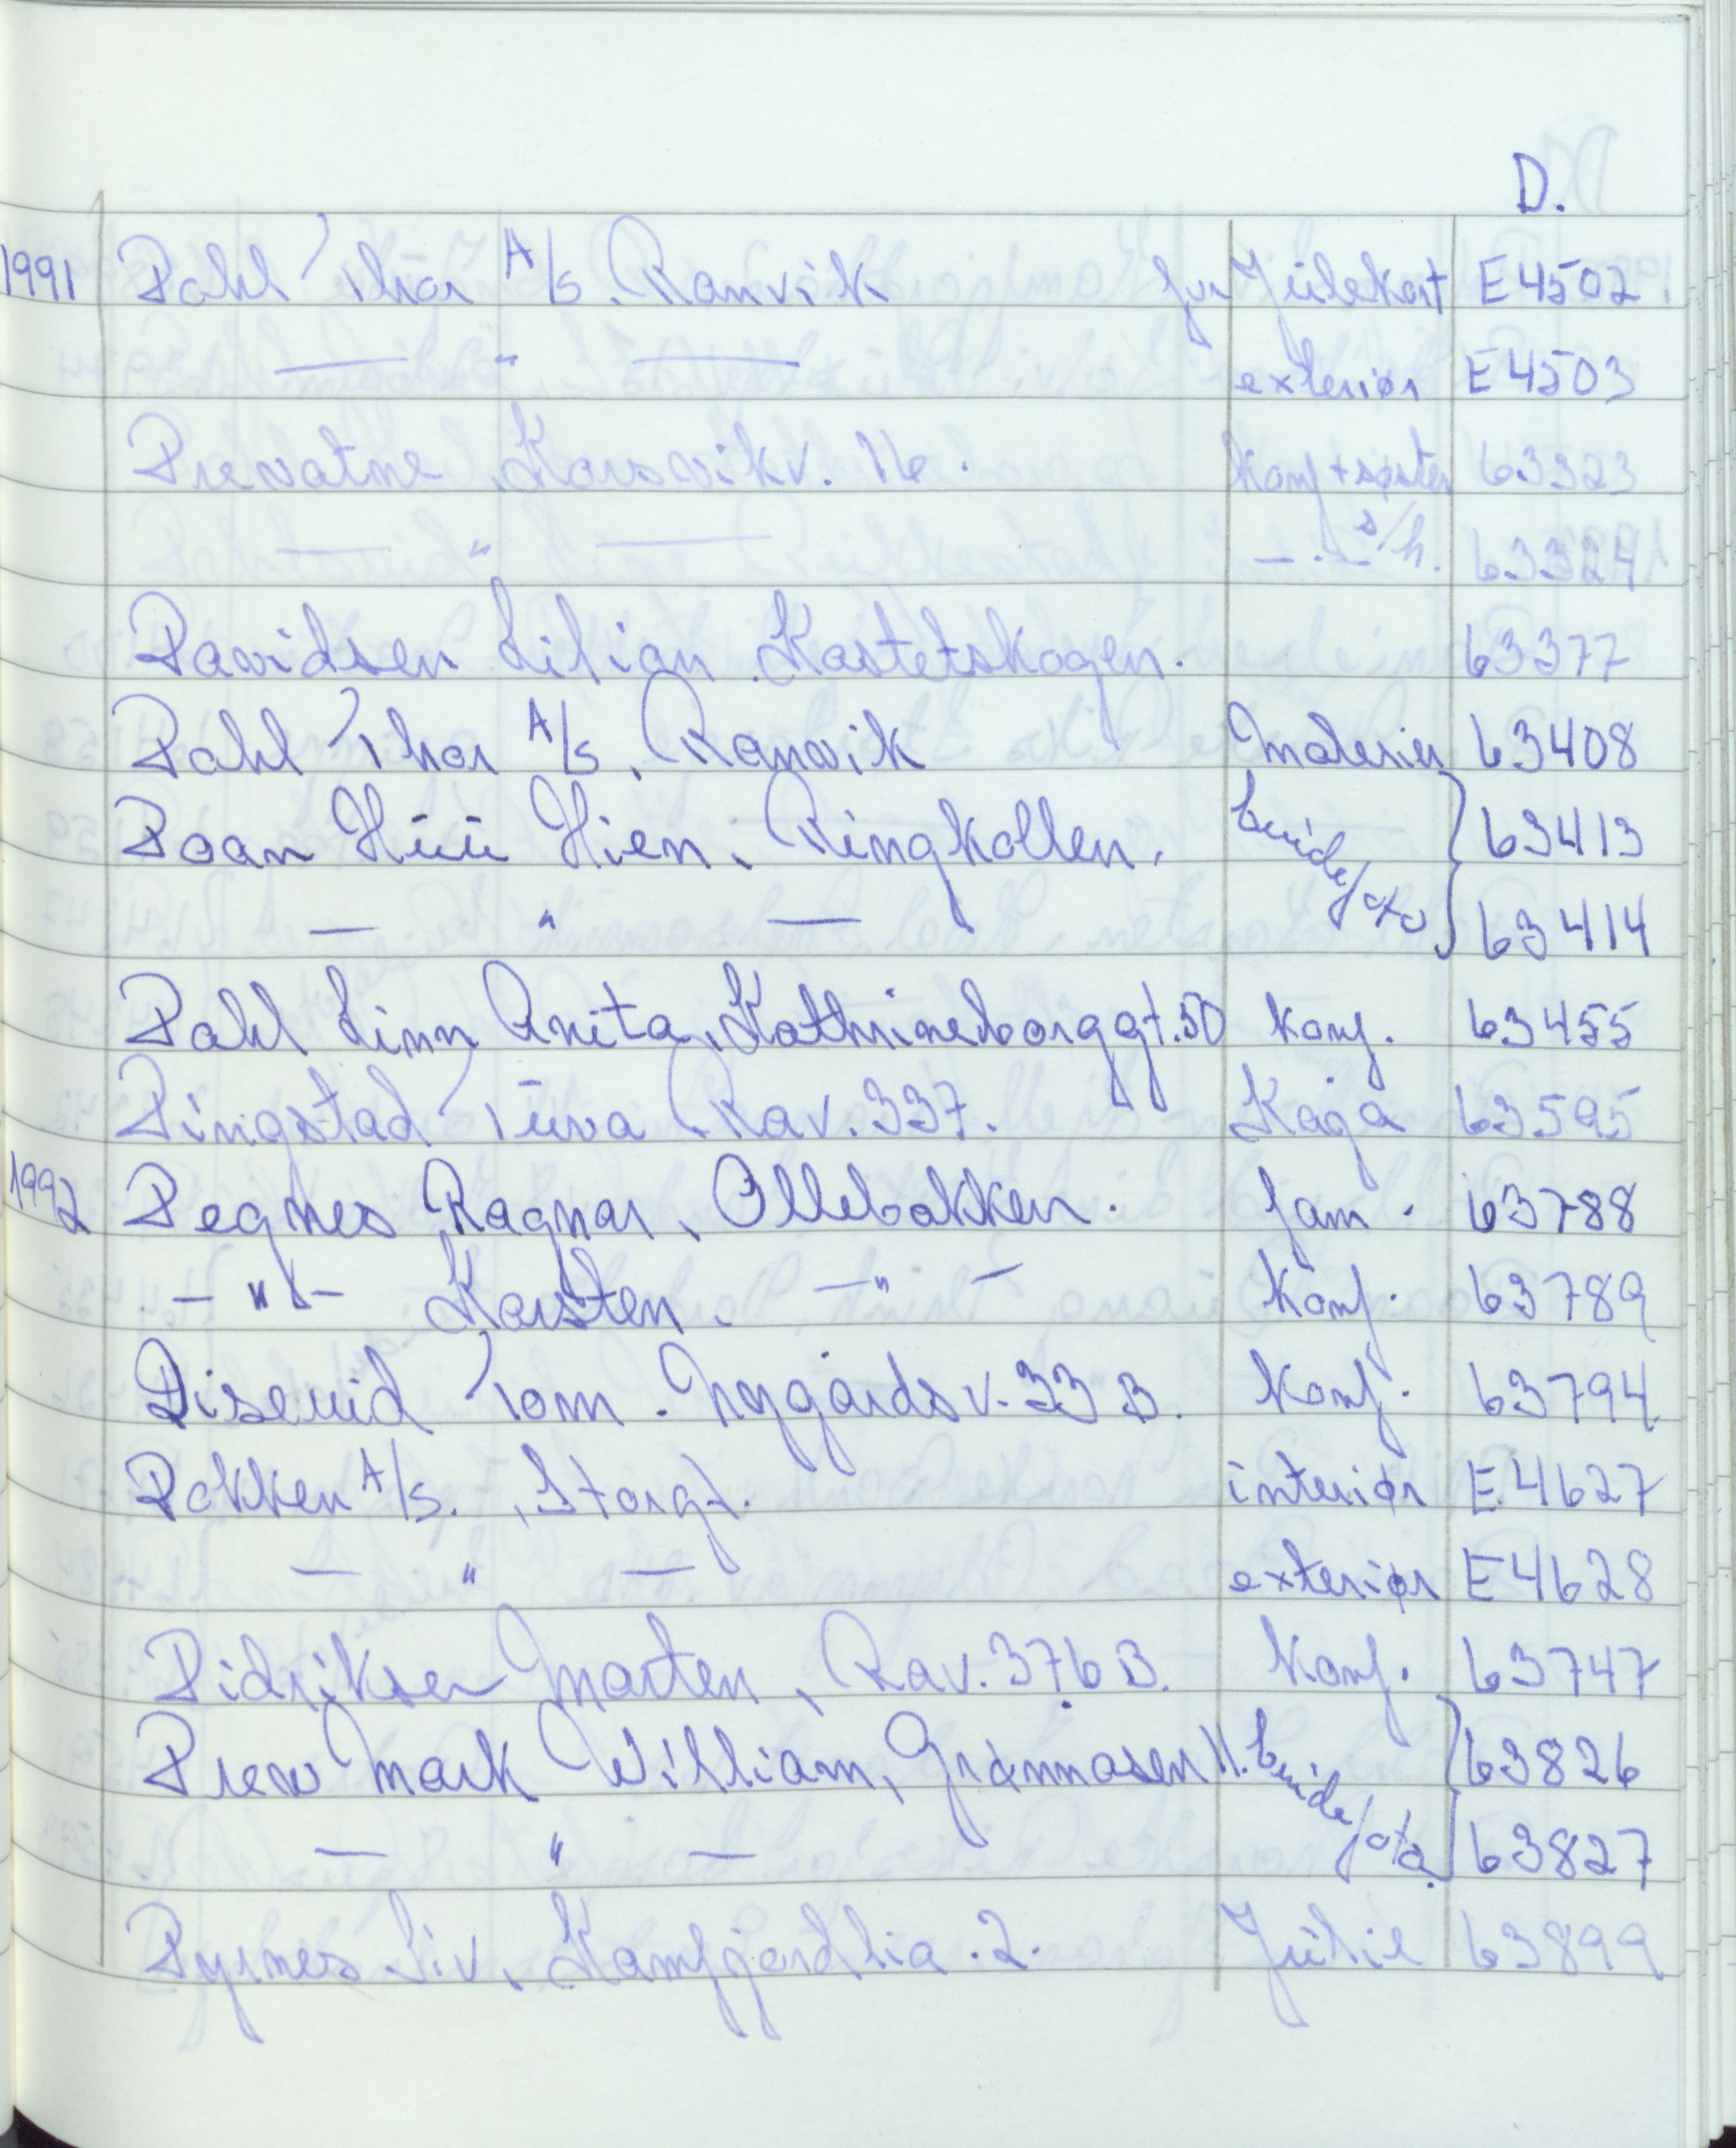 D.
1991 Dahl Thor A/s. Ranvik for Julekort E4502
— " — exteriør E4503
Drevatne, Korsvikv. 16. Konf + søster 63323
— " — — . — s/h. 63324
Davidsen Lilian. Kastetskogen. 63377
Dahl Thor A/s, Ranvik Malerier 63408
Doan Hüü Hien, Ringkollen. brude/ 63413
— " — 63414
Dahl Linn Anita, Kathrineborggt. 50 Konf. 63455
Dingstad Tuva, Rav. 337. Kaga 63595
1992 Degnes Ragnar, Ollebakken. fam. 63788
— " — Karsten. — " — Konf. 63789
Diserud Tom. Nygårdsv. 33 B. Konf. 63794
Dokken A/s., Storgt. interiør E.4627
— " — exteriør E4628
Didriksen Marten, Rav. 376 B. Konf. 63747
Drew Mark William, Grønnåsen 11. brude/ 63826
— " — 63827
Dyrnes Siv, Kamfjordlia. 2. Julie 63899